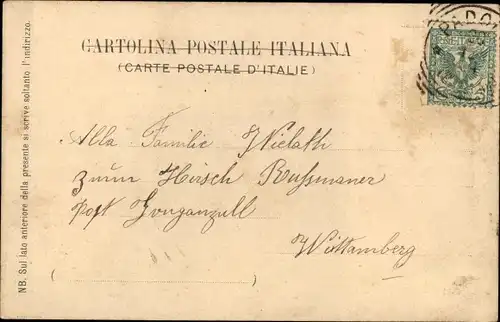 CARTOLINA POSTALE ITALIANA
(CARTE POSTALE D'ITALIE)
PADO
NB. Sul lato anteriore della presente si scrive soltanto l'indirizzo.
Alla Familie Wielath
zum Hirsch Russmaner
post
Wüttamberg